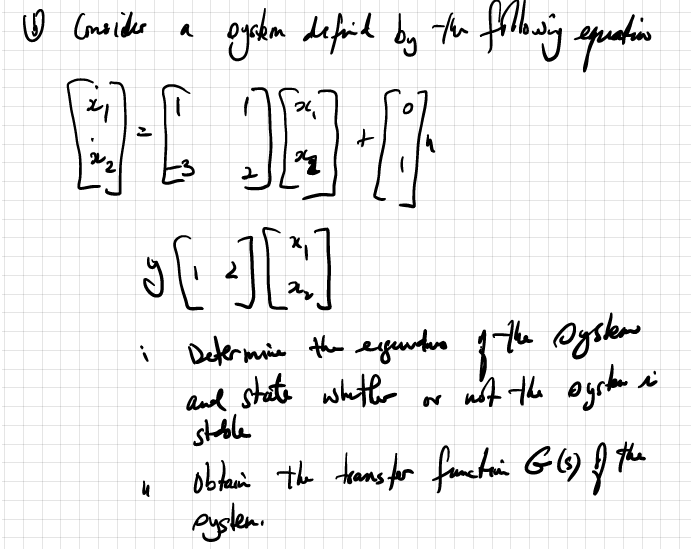 (b) Consider a system defined by the following equation
[ẋ₁ ẋ₂] = [1 1; -3 2] [x₁ x₂] + [0 1] u
y [1 2] [x₁ x₂]
i Determine the eigenvalues of the system
and state whether or not the system is
stable
ii Obtain the transfer function G(s) of the
system.